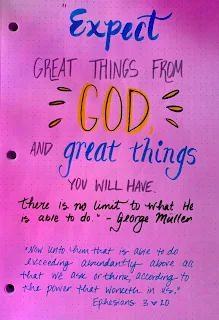 "Expect
GREAT THINGS FROM
GOD,
AND great things
YOU WILL HAVE.
there is no limit to what He
is able to do." - George Müller
"Now unto him that is able to do
exceeding abundantly above all
that we ask or think, according to
the power that worketh in us."
Ephesians 3 ♥ 20